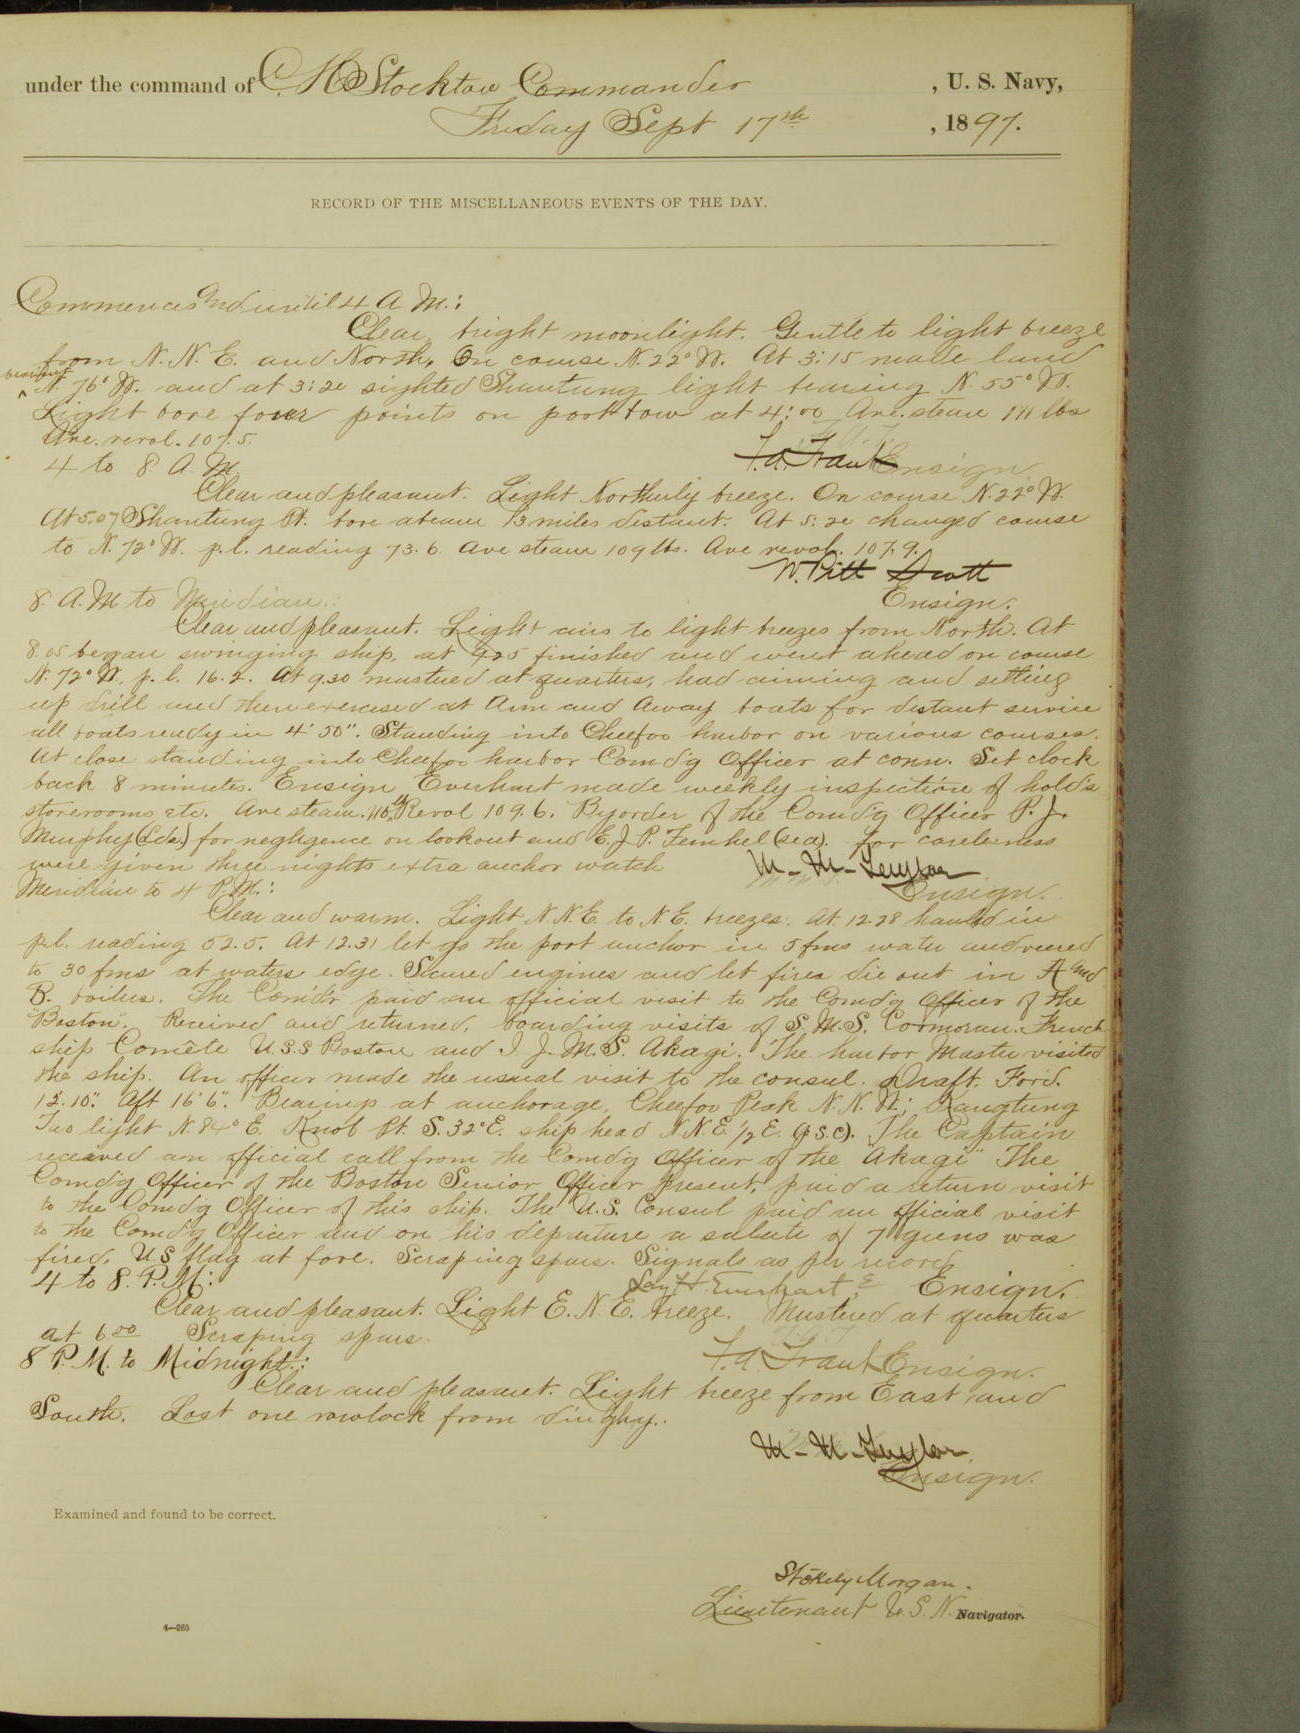 under the command of C. H. Stockton Commander , U. S. Navy,
Friday Sept 17th , 1897.
RECORD OF THE MISCELLANEOUS EVENTS OF THE DAY.
Commences and until 4 A. M.:
Clear, bright moonlight. Gentle to light breeze
from N. N. E. and North. On course N. 22° W. At 3:15 made land
bearing N. 76° W. and at 3:20 sighted Shantung light bearing N. 55° W.
Light bore four points on port bow at 4:00 Ave. steam 111 lbs
Ave. revol. 107.5.
4 to 8 A. M. Ensign
Clear and pleasant. Light Northerly breeze. On course N. 22° W.
At 5.07 Shantung Pt. bore abeam 13 miles distant. At 5:20 changed course
to N. 72° W. p.l. reading 73.6. Ave steam 109 lbs. Ave revol. 107.9.
W. Pitt Scott
8 A. M to Meridian: Ensign.
Clear and pleasant. Light airs to light breezes from North. At
8.05 began swinging ship, at 9.25 finished and went ahead on course
N. 72° W. p. l. 16.2. At 9.30 mustered at quarters, had aiming and setting
up drill and then exercised at Arm and Away boats for distant service
all boats ready in 4' 50". Standing into Cheefoo harbor on various courses.
At close standing into Cheefoo harbor Com'd'g Officer at conn. Set clock
back 8 minutes. Ensign Everhart made weekly inspection of holds
storerooms etc. Ave steam. 110, Revol 109.6. By order of the Com'd'g Officer P. J.
Murphy (Lds.) for negligence on lookout and E. J. P. (sea). for careless
were given three nights extra anchor watch M. M. Taylor
Meridian to 4 P. M.: Ensign.
Clear and warm. Light N. N. E. to N. E. breezes. At 12.28 hauled in
p.l. reading 52.5. At 12.31 let go the port anchor in 5 fms water and veered
to 30 fms at waters edge. Secured engines and let fires die out in A and
B. boilers. The Com'd'r paid an official visit to the Comd'g Officer of the
"Boston". Received and returned, boarding visits of S. M. S. Cormoran. French
ship Comête U.S.S Boston and I. J. M. S. Akagi. The harbor Master visited
the ship. An officer made the usual visit to the consul. Draft. Ford.
12' 10". Aft 16' 6". Bearings at anchorage, Cheefoo Peak N. N. W.; Kungtung
Tao light N. 84° E. Knob Pt. S. 32° E. ship head N N. E. ½ E. (p. s. c). The Captain
received an official call from the Comd'g Officer of the "Akagi" The
Comd'g Officer of the Boston Senior Officer present, paid a return visit
to the Comdg Officer of this ship. The U. S. Consul paid an official visit
to the Comdg Officer and on his departure a salute of 7 guns was
fired, U S flag at fore. Scraping spars. Signals as per record
4 to 8. P. M: Lay H. Everhart, Ensign.
Clear and pleasant. Light E. N. E. breeze. Mustered at quarters
at 6 00 Scraping spars.
8 P. M. to Midnight.: Ensign.
Clear and pleasant. Light breeze from East and
South. Lost one rowlock from dinghy.
M. M. Taylor
Ensign.
Examined and found to be correct.
Stokely Morgan.
Lieutenant U. S. N. Navigator.
4—265